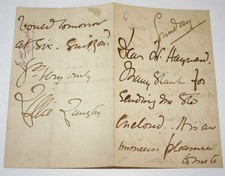 Sunday
Dear Mr. Hayward
Many thanks for
sending me the
enclosed. It is an
immense pleasure
to me to
tomorrow
at Six.
Yrs Very truly
Lillie Langtry